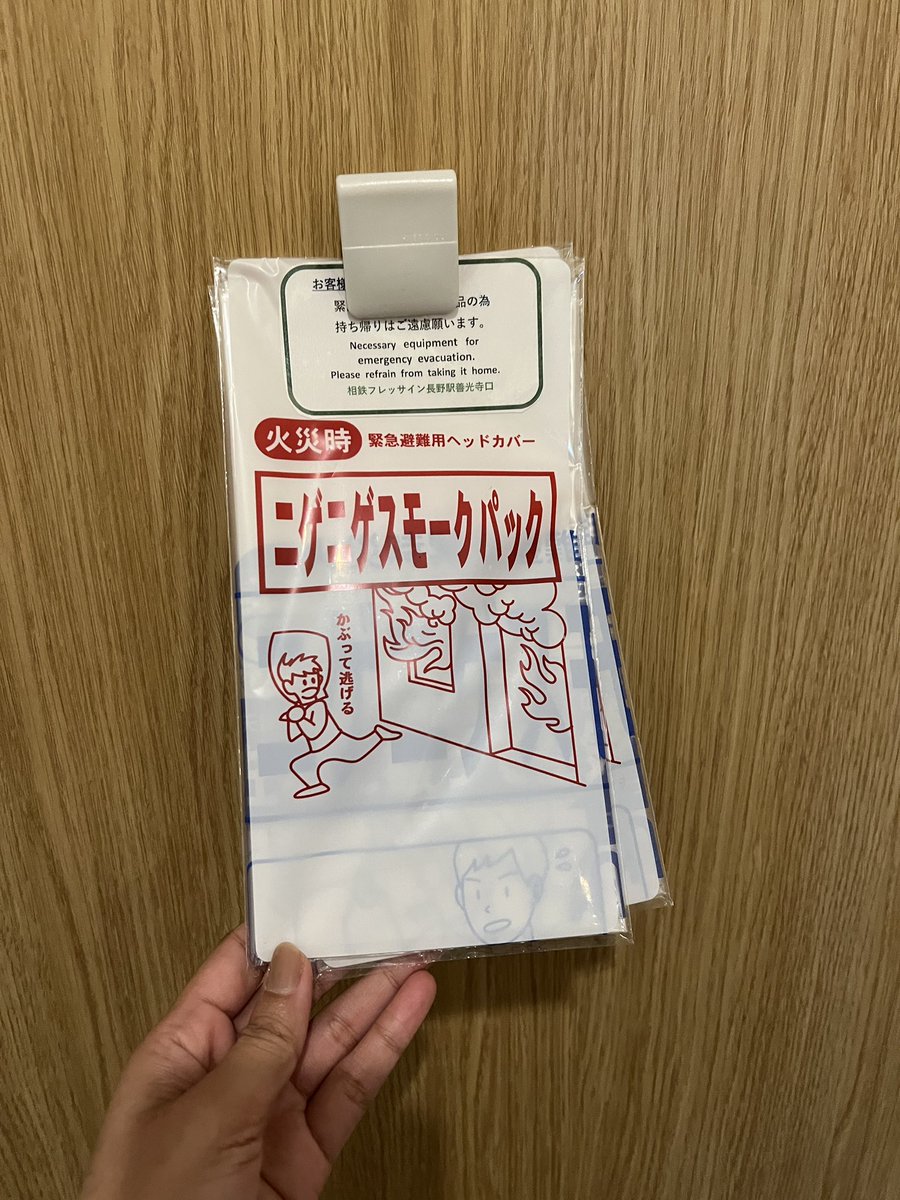 お客様
緊 品の為
持ち帰りはご遠慮願います。
Necessary equipment for
emergency evacuation.
Please refrain from taking it home.
相鉄フレッサイン長野駅善光寺口
火災時 緊急避難用ヘッドカバー
ニゲニゲスモークパック
かぶって逃げる